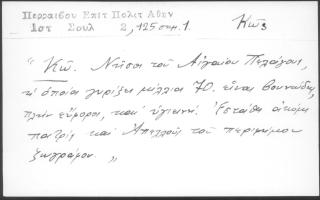 Περραιβου Επιτ Πολιτ Αθην
Ιστ Σουλ 2,125 σημ.1.
Κῶς
"Κῶ. Νῆσος τοῦ Αἰγαίου Πελάγους,
ἡ ὁποία γυρίζει μίλλια 70. εἶναι βουνώδης,
πλὴν εὔφορος, καὶ ὑγιεινή. Ἐστάθη ἀκόμη
πατρὶς καὶ Ἀπελλοῦς τοῦ περιφήμου
ζωγράφου."